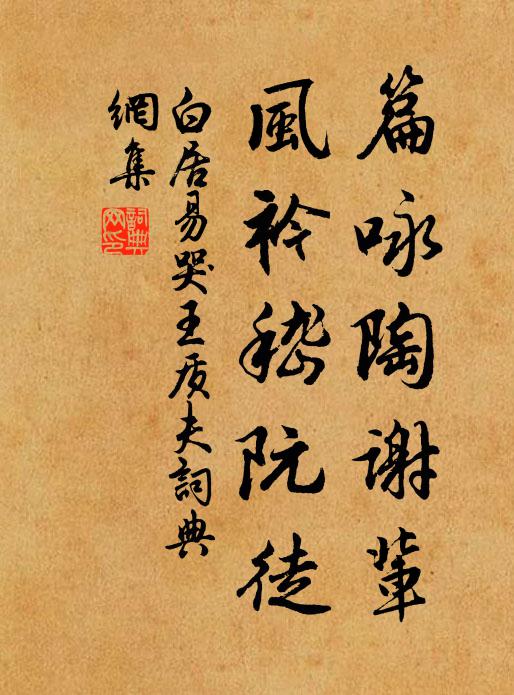 篇咏陶謝輩
風衿嵇阮徒
白居易哭王质夫詞典
網集
詞典
网印